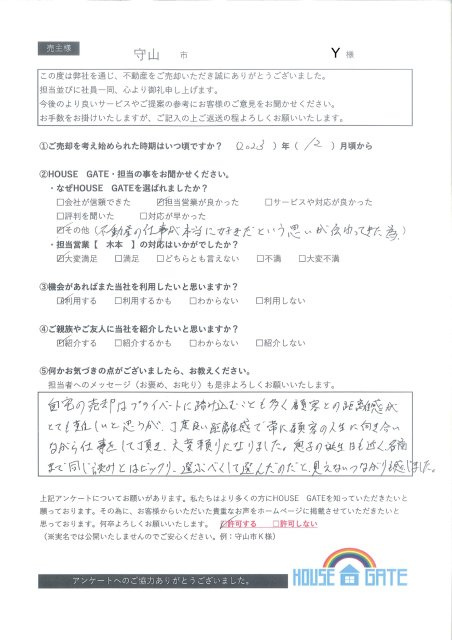 売主様
守山 市 Y 様
この度は弊社を通じ、不動産をご売却いただき誠にありがとうございました。
担当並びに社員一同、心より御礼申し上げます。
今後のより良いサービスやご提案の参考にお客様のご意見をお聞かせください。
お手数をお掛けいたしますが、ご記入の上ご返送の程よろしくお願いいたします。
①ご売却を考え始められた時期はいつ頃ですか? (2023)年(12)月頃から
②HOUSE GATE・担当の事をお聞かせください。
・なぜHOUSE GATEを選ばれましたか?
□会社が信頼できた ☑担当営業が良かった □サービスや対応が良かった
□評判を聞いた □対応が早かった
☑その他(不動産の仕事が本当に好きだという思いが伝わってきた為)
・担当営業【 木本 】の対応はいかがでしたか?
☑大変満足 □満足 □どちらとも言えない □不満 □大変不満
③機会があればまた当社を利用したいと思いますか?
☑利用する □利用するかも □わからない □利用しない
④ご親族やご友人に当社を紹介したいと思いますか?
☑紹介する □紹介するかも □わからない □紹介しない
⑤何かお気づきの点がございましたら、お教えください。
担当者へのメッセージ(お褒め、お叱り)も是非よろしくお願いいたします。
自宅の売却はプライベートに踏み込むことも多く顧客との距離感が
とても難しいと思うが、丁度良い距離感で常に顧客の人生に向き合い
ながら仕事をして頂き、大変頼りになりました。息子の誕生日も近く、名前
まで同じ読みとはビックリ、選ぶべくして選んだのだと、見えないつながりも感じました。
上記アンケートについてお願いがあります。私たちはより多くの方にHOUSE GATEを知っていただきたいと
願っております。その為に、お客様からいただいた貴重なお声をホームページに掲載させていただきたいと
思っております。何卒よろしくお願いいたします。 ☑許可する □許可しない
(※実名では公開いたしませんのでご安心ください。例:守山市K様)
アンケートへのご協力ありがとうございました。
HOUSE GATE